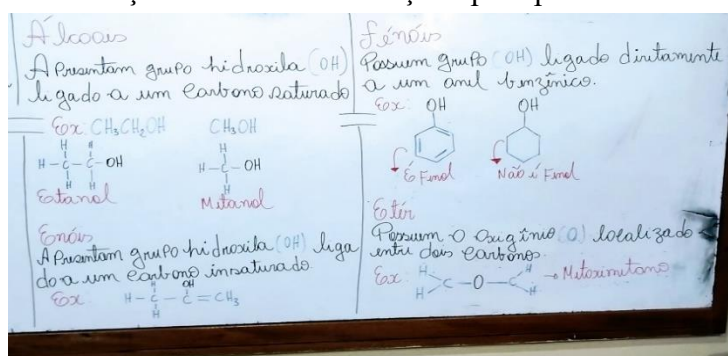 Álcoois
Apresentam grupo hidroxila (OH)
ligado a um carbono saturado
Ex: CH₃CH₂OH CH₃OH
H H
H-C-C-OH
H H
Etanol
H
H-C-OH
H
Metanol
Enóis
Apresentam grupo hidroxila (OH) liga
do a um carbono insaturado.
Ex
H OH
H-C-C=CH₃
H
Fénóis
Possuem grupo (OH) ligado diretamente
a um anel benzínico.
Ex:
OH OH
É Fenol Não é Fenol
Éter
Possuem o Oxigênio (O) localizado
entre dois carbonos.
Ex: H C-O-C H → Metoximetano
H H